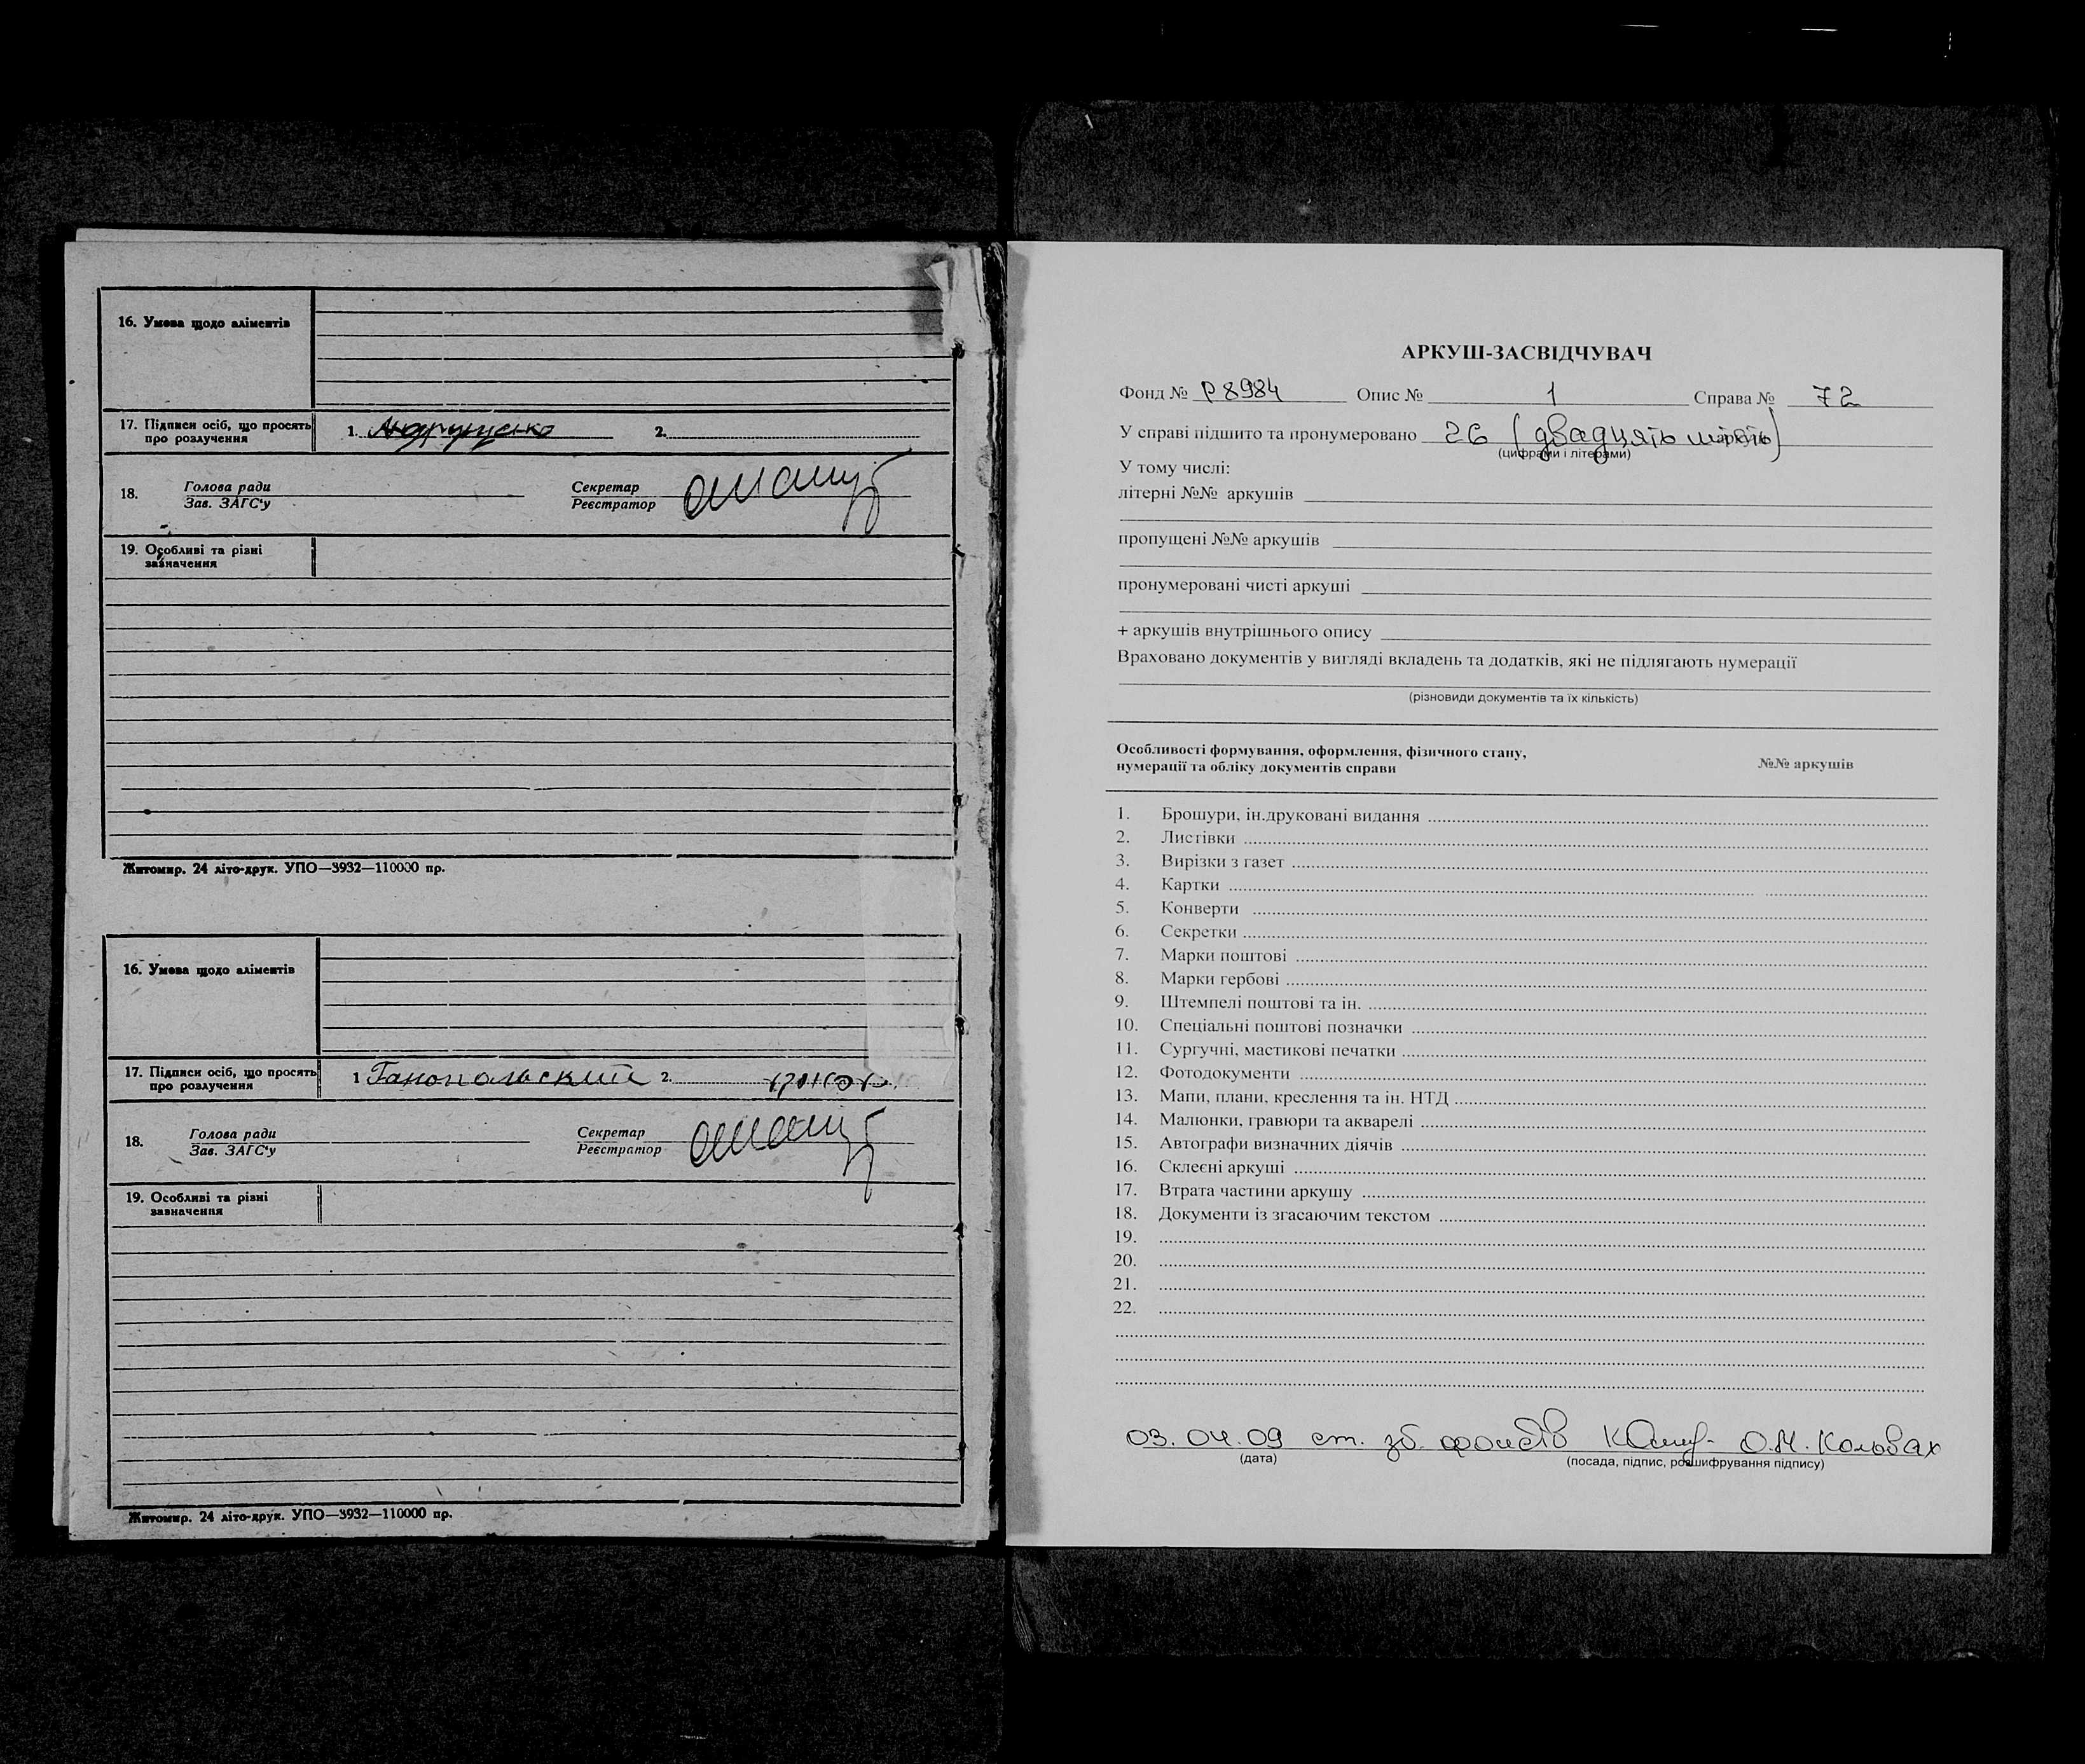 16. Умова щодо аліментів
17. Підписи осіб, що просять
про розлучення
1. Андрущенко 2.
18. Голова ради
Зав. ЗАГС'у
Секретар
Реєстратор
19. Особливі та різні
зазначення
Житомир. 24 літо-друк. УПО—3932—110000 пр.
16. Умова щодо аліментів
17. Підписи осіб, що просять
про розлучення
1 Ганопольский 2.
18. Голова ради
Зав. ЗАГС'у
Секретар
Реєстратор
19. Особливі та різні
зазначення
Житомир. 24 літо-друк. УПО—3932—110000 пр.
АРКУШ-ЗАСВІДЧУВАЧ
Фонд № Р8984 Опис № 1 Справа № 72
У справі підшито та пронумеровано 26 (двадцять шість) аркушів
(цифрами і літерами)
У тому числі:
літерні №№ аркушів
пропущені №№ аркушів
пронумеровані чисті аркуші
+ аркушів внутрішнього опису
Враховано документів у вигляді вкладень та додатків, які не підлягають нумерації
(різновиди документів та їх кількість)
Особливості формування, оформлення, фізичного стану,
нумерації та обліку документів справи
№№ аркушів
1. Брошури, ін.друковані видання
2. Листівки
3. Вирізки з газет
4. Картки
5. Конверти
6. Секретки
7. Марки поштові
8. Марки гербові
9. Штемпелі поштові та ін.
10. Спеціальні поштові позначки
11. Сургучні, мастикові печатки
12. Фотодокументи
13. Мапи, плани, креслення та ін. НТД
14. Малюнки, гравюри та акварелі
15. Автографи визначних діячів
16. Склеєні аркуші
17. Втрата частини аркушу
18. Документи із згасаючим текстом
19.
20.
21.
22.
03.04.09 ст. зб. фондів О.М. Ковбах
(дата) (посада, підпис, розшифрування підпису)